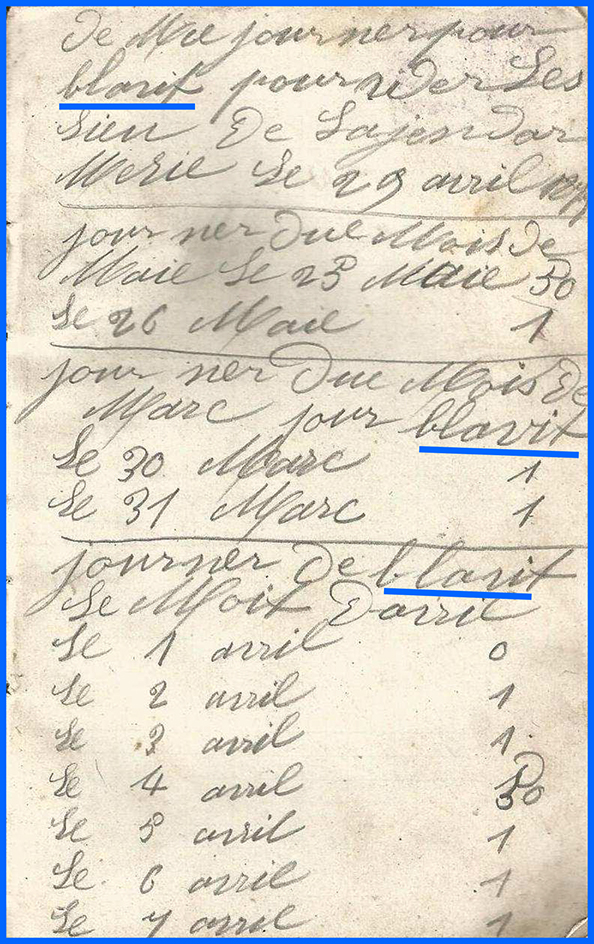 de Mie journer pour
blavit pour vider Les
Lieu De Lajendar
Merie Le 29 avril
jour ner Due Mois De
Maie Le 25 Maie 50
Le 26 Maie 1
jour ner Due Mois De
Marc pour blavit
Le 30 Marc 1
Le 31 Marc 1
journer De blavit
Le Moit Davril
Le 1 avril 0
Le 2 avril 1
Le 3 avril 1
Le 4 avril 50
Le 5 avril 1
Le 6 avril 1
Le 7 avril 1